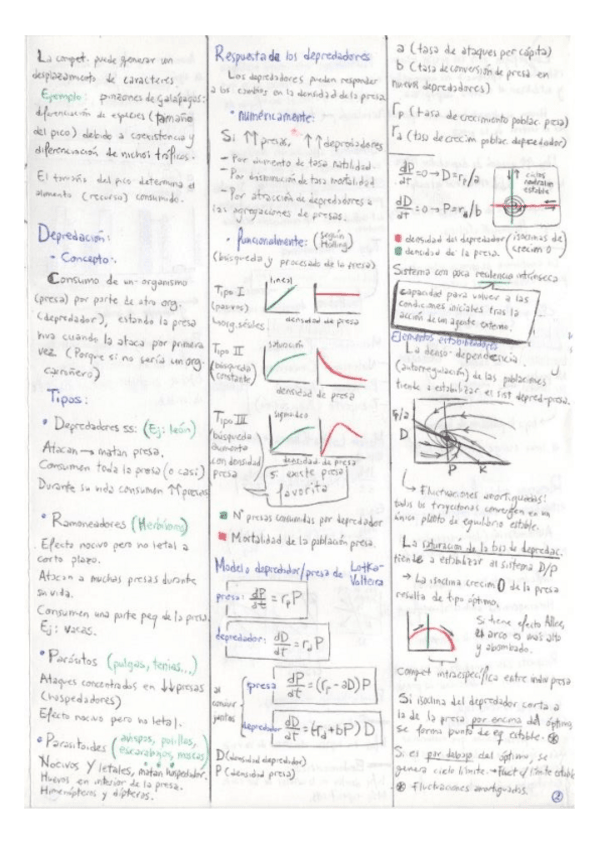 La compet. puede generar un
desplazamiento de caracteres
Ejemplo: pinzones de Galápagos:
diferenciación de especies (tamaño
del pico) debido a coexistencia y
diferenciación de nichos tróficos.
El tamaño del pico determina el
alimento (recurso) consumido.
Depredación:
- Concepto:
Consumo de un organismo
(presa) por parte de otro org.
(depredador), estando la presa
viva cuando la ataca por primera
vez (Porque si no sería un org.
carroñero)
Tipos:
• Depredadores ss: (Ej: león)
Atacan → matan presa.
Consumen toda la presa (o casi)
Durante su vida consumen ↑↑ presas
• Ramoneadores (Herbívoro)
Efecto nocivo pero no letal a
corto plazo.
Atacan a muchas presas durante
su vida.
Consumen una parte peq de la presa.
Ej: vacas.
• Parásitos (pulgas, tenias...)
Ataques concentrados en ↓↓ presas
(hospedadores)
Efecto nocivo pero no letal.
• Parasitoides (avispas, polillas,
escarabajos, moscas)
Nocivos y letales, matan hospedador.
Huevos en interior de la presa.
Himenópteros y dípteros.
Respuesta de los depredadores
Los depredadores pueden responder
a los cambios en la densidad de la presa.
• numéricamente:
Si ↑↑ presas, ↑↑ depredadores
- Por aumento de tasa natalidad.
- Por disminución de tasa mortalidad
- Por atracción de depredadores a
las agregaciones de presas.
• Funcionalmente: (según Holling)
(búsqueda y procesado de la presa)
Tipo I
lineal
(pasivos)
densidad de presa
Tipo II
saturación
(búsqueda
constante)
densidad de presa
Tipo III
sigmoidea
(búsqueda
aumenta
con densidad
presa
densidad de presa
Si existe presa
favorita
Nº presas consumidas por depredador
Mortalidad de la población presa.
Modelo depredador/presa de Lotka-
Volterra
presa: dP/dt = rpP
depredador: dD/dt = rdP
presa dP/dt = (rp - aD)P
depredador dD/dt = (-rd + bP)D
D (densidad depredador)
P (densidad presa)
a (tasa de ataques per cápita)
b (tasa de conversión de presa en
nuevos depredadores)
rp (tasa de crecimiento poblac. presa)
rd (tasa decrecim poblac depredador)
dP/dt = 0 → D = rp/a
dD/dt = 0 → P = rd/b
ciclos
estable
densidad del depredador (isoclinas de
densidad de la presa. crecim 0)
Sistema con poca resiliencia intrínseca
capacidad para volver a las
condiciones iniciales tras la
acción de un agente externo.
Elementos estabilizadores
La denso-dependencia
(autorregulación) de las poblaciones
tiende a estabilizar el sist depred-presa.
D
P K
→ Fluctuaciones amortiguadas:
todas las trayectorias convergen en un
único punto de equilibrio estable.
La saturación de la tasa de depredac.
tiende a estabilizar el sistema D/P
→ La isoclina crecim 0 de la presa
resulta de tipo óptimo.
Si tiene efecto Allee,
el arco es más alto
y abombado.
Compet intraespecífica entre indiv presa
Si isoclina del depredador corta a
la de la presa por encima del óptimo,
se forma punto de eq estable. ⊛
Si es por debajo del óptimo, se
genera ciclo límite. → Fluct y límite estable
⊛ Fluctuaciones amortiguadas.
2